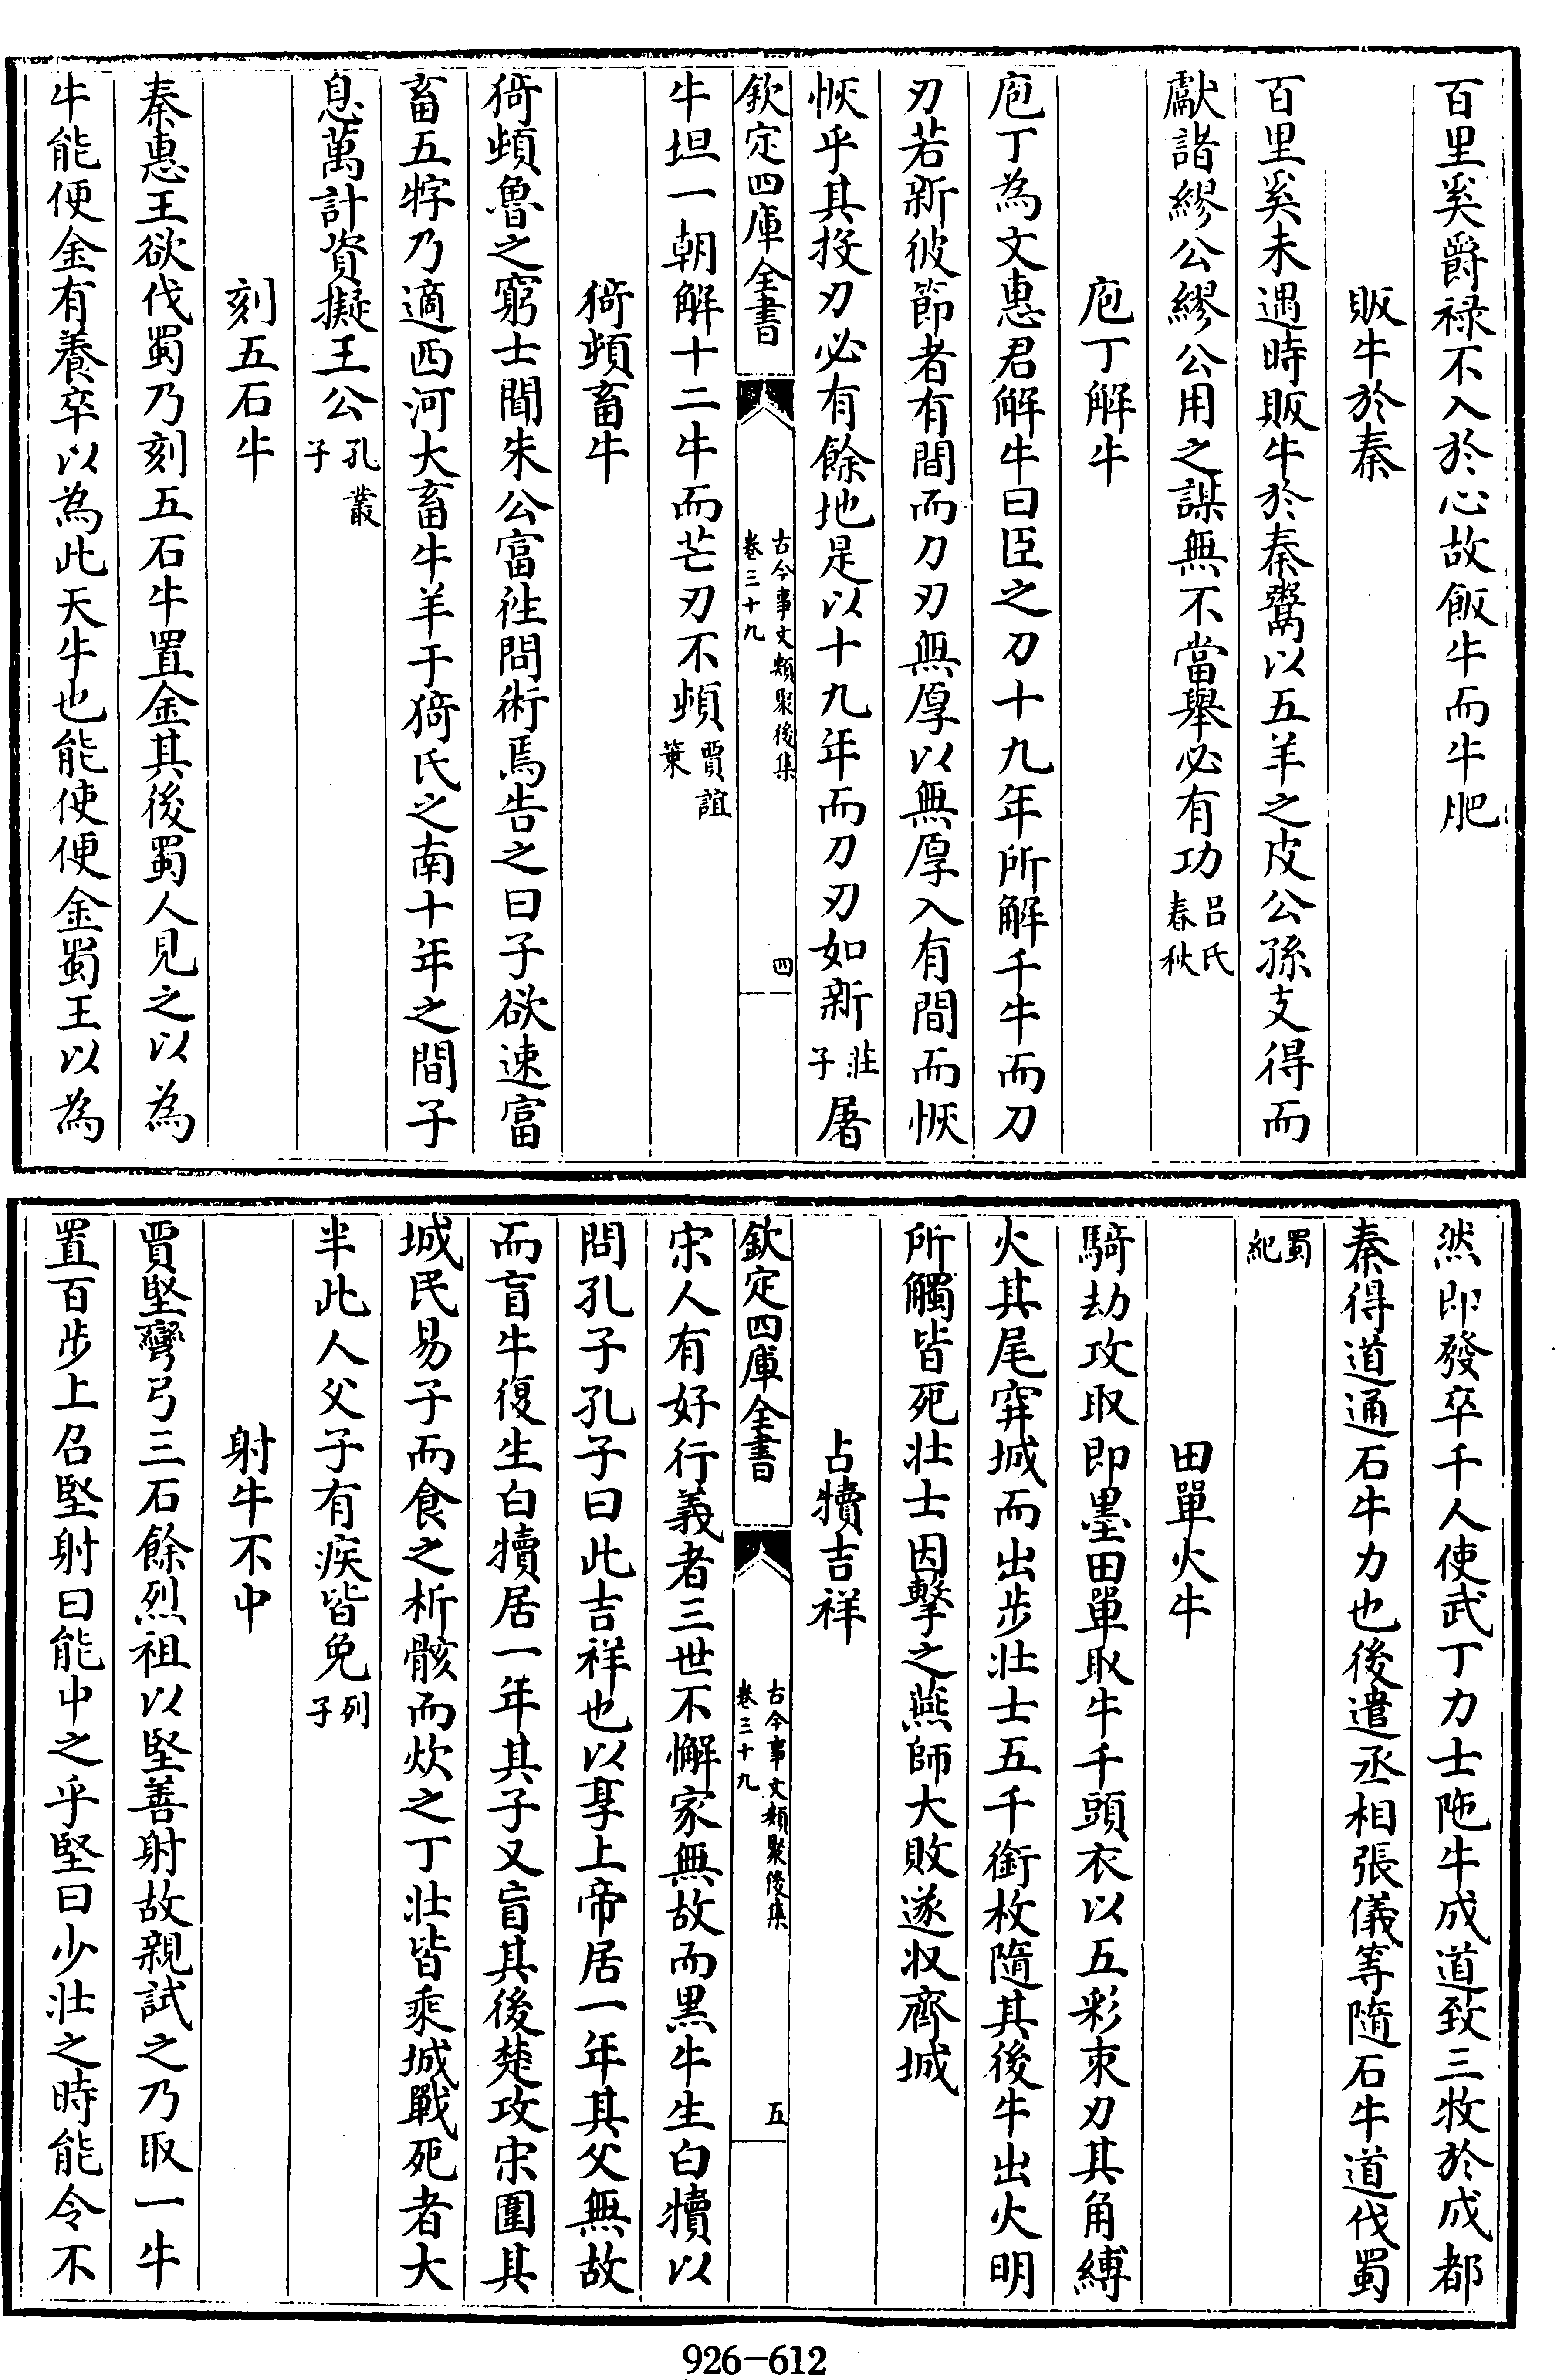 百里奚爵禄不入於心故飯牛而牛肥
販牛於秦
百里奚未遇時販牛於秦鬻以五羊之皮公孫支得而
獻諸繆公繆公用之謀無不當舉必有功吕氏春秋
庖丁解牛
庖丁為文惠君解牛曰臣之刀十九年所解千牛而刀
刃若新彼節者有間而刀刃無厚以無厚入有間而恢
恢乎其投刃必有餘地是以十九年而刀刃如新莊子屠
欽定四庫全書
古今事文類聚後集
卷三十九
四
牛坦一朝解十二牛而芒刃不頓賈誼策
猗頓畜牛
猗頓魯之窮士聞朱公富往問術焉告之曰子欲速富
畜五牸乃適西河大畜牛羊于猗氏之南十年之間子
息萬計資擬王公孔叢子
刻五石牛
秦惠王欲伐蜀乃刻五石牛置金其後蜀人見之以為
牛能便金有養卒以為此天牛也能使便金蜀王以為
然即發卒千人使武丁力士陁牛成道致三牧於成都
秦得道通石牛力也後遣丞相張儀等隨石牛道伐蜀
蜀紀
田單火牛
騎劫攻取即墨田單取牛千頭衣以五彩束刃其角縛
火其尾穿城而出步壯士五千銜枚隨其後牛出火明
所觸皆死壯士因擊之燕師大敗遂收齊城
占犢吉祥
欽定四庫全書
古今事文類聚後集
卷三十九
五
宋人有好行義者三世不懈家無故而黒牛生白犢以
問孔子孔子曰此吉祥也以享上帝居一年其父無故
而盲牛復生白犢居一年其子又盲其後楚攻宋圍其
城民易子而食之析骸而炊之丁壯皆乘城戰死者大
半此人父子有疾皆免列子
射牛不中
賈堅彎弓三石餘烈祖以堅善射故親試之乃取一牛
置百步上召堅射曰能中之乎堅曰少壯之時能令不
926-612